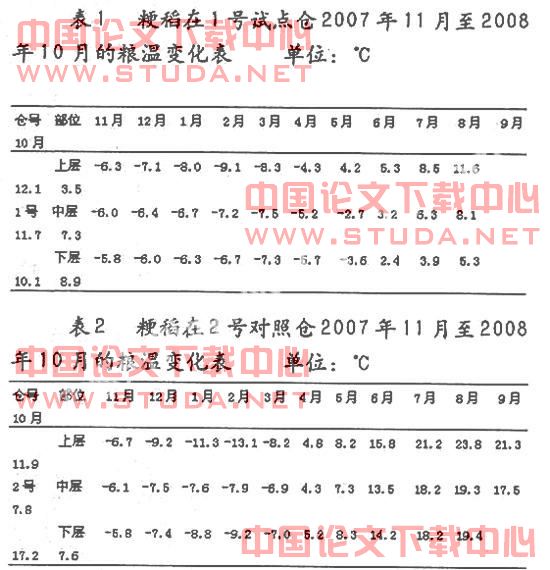 表1 粳稻在1号试点仓2007年11月至2008
年10月的粮温变化表 单位：℃
中国论文下载中心
WWW.STUDA.NET
仓号 部位 11月 12月 1月 2月 3月 4月 5月 6月 7月 8月 9月
10月
上层 -6.3 -7.1 -8.0 -9.1 -8.3 -4.3 4.2 5.3 8.5 11.6
12.1 3.5
中国论文下载中心
1号 中层 -6.0 -6.4 -6.7 -7.2 -7.5 -5.2 -2.7 3.2 6.3 8.1
WWW.STUDA.NET
11.7 7.3
下层 -5.8 -6.0 -6.3 -6.7 -7.3 -5.7 -3.6 2.4 3.9 5.3
10.1 8.9
表2 粳稻在2号对照仓2007年11月至2008
中国论文下载中心
年10月的粮温变化表 单位：℃
WWW.STUDA.NET
仓号 部位 11月 12月 1月 2月 3月 4月 5月 6月 7月 8月 9月
10月
上层 -6.7 -9.2 -11.3 -13.1 -8.2 4.8 8.2 15.8 21.2 23.8 21.3
11.9
2号 中层 -6.1 -7.5 -7.6 -7.9 -6.9 4.3 7.3 13.5 18.2 19.3 17.5
7.8
下层 -5.8 -7.4 -8.8 -9.2 -7.0 5.2 8.3 14.2 18.2 19.4
中国论文下载中心
17.2 7.6
WWW.STUDA.NET